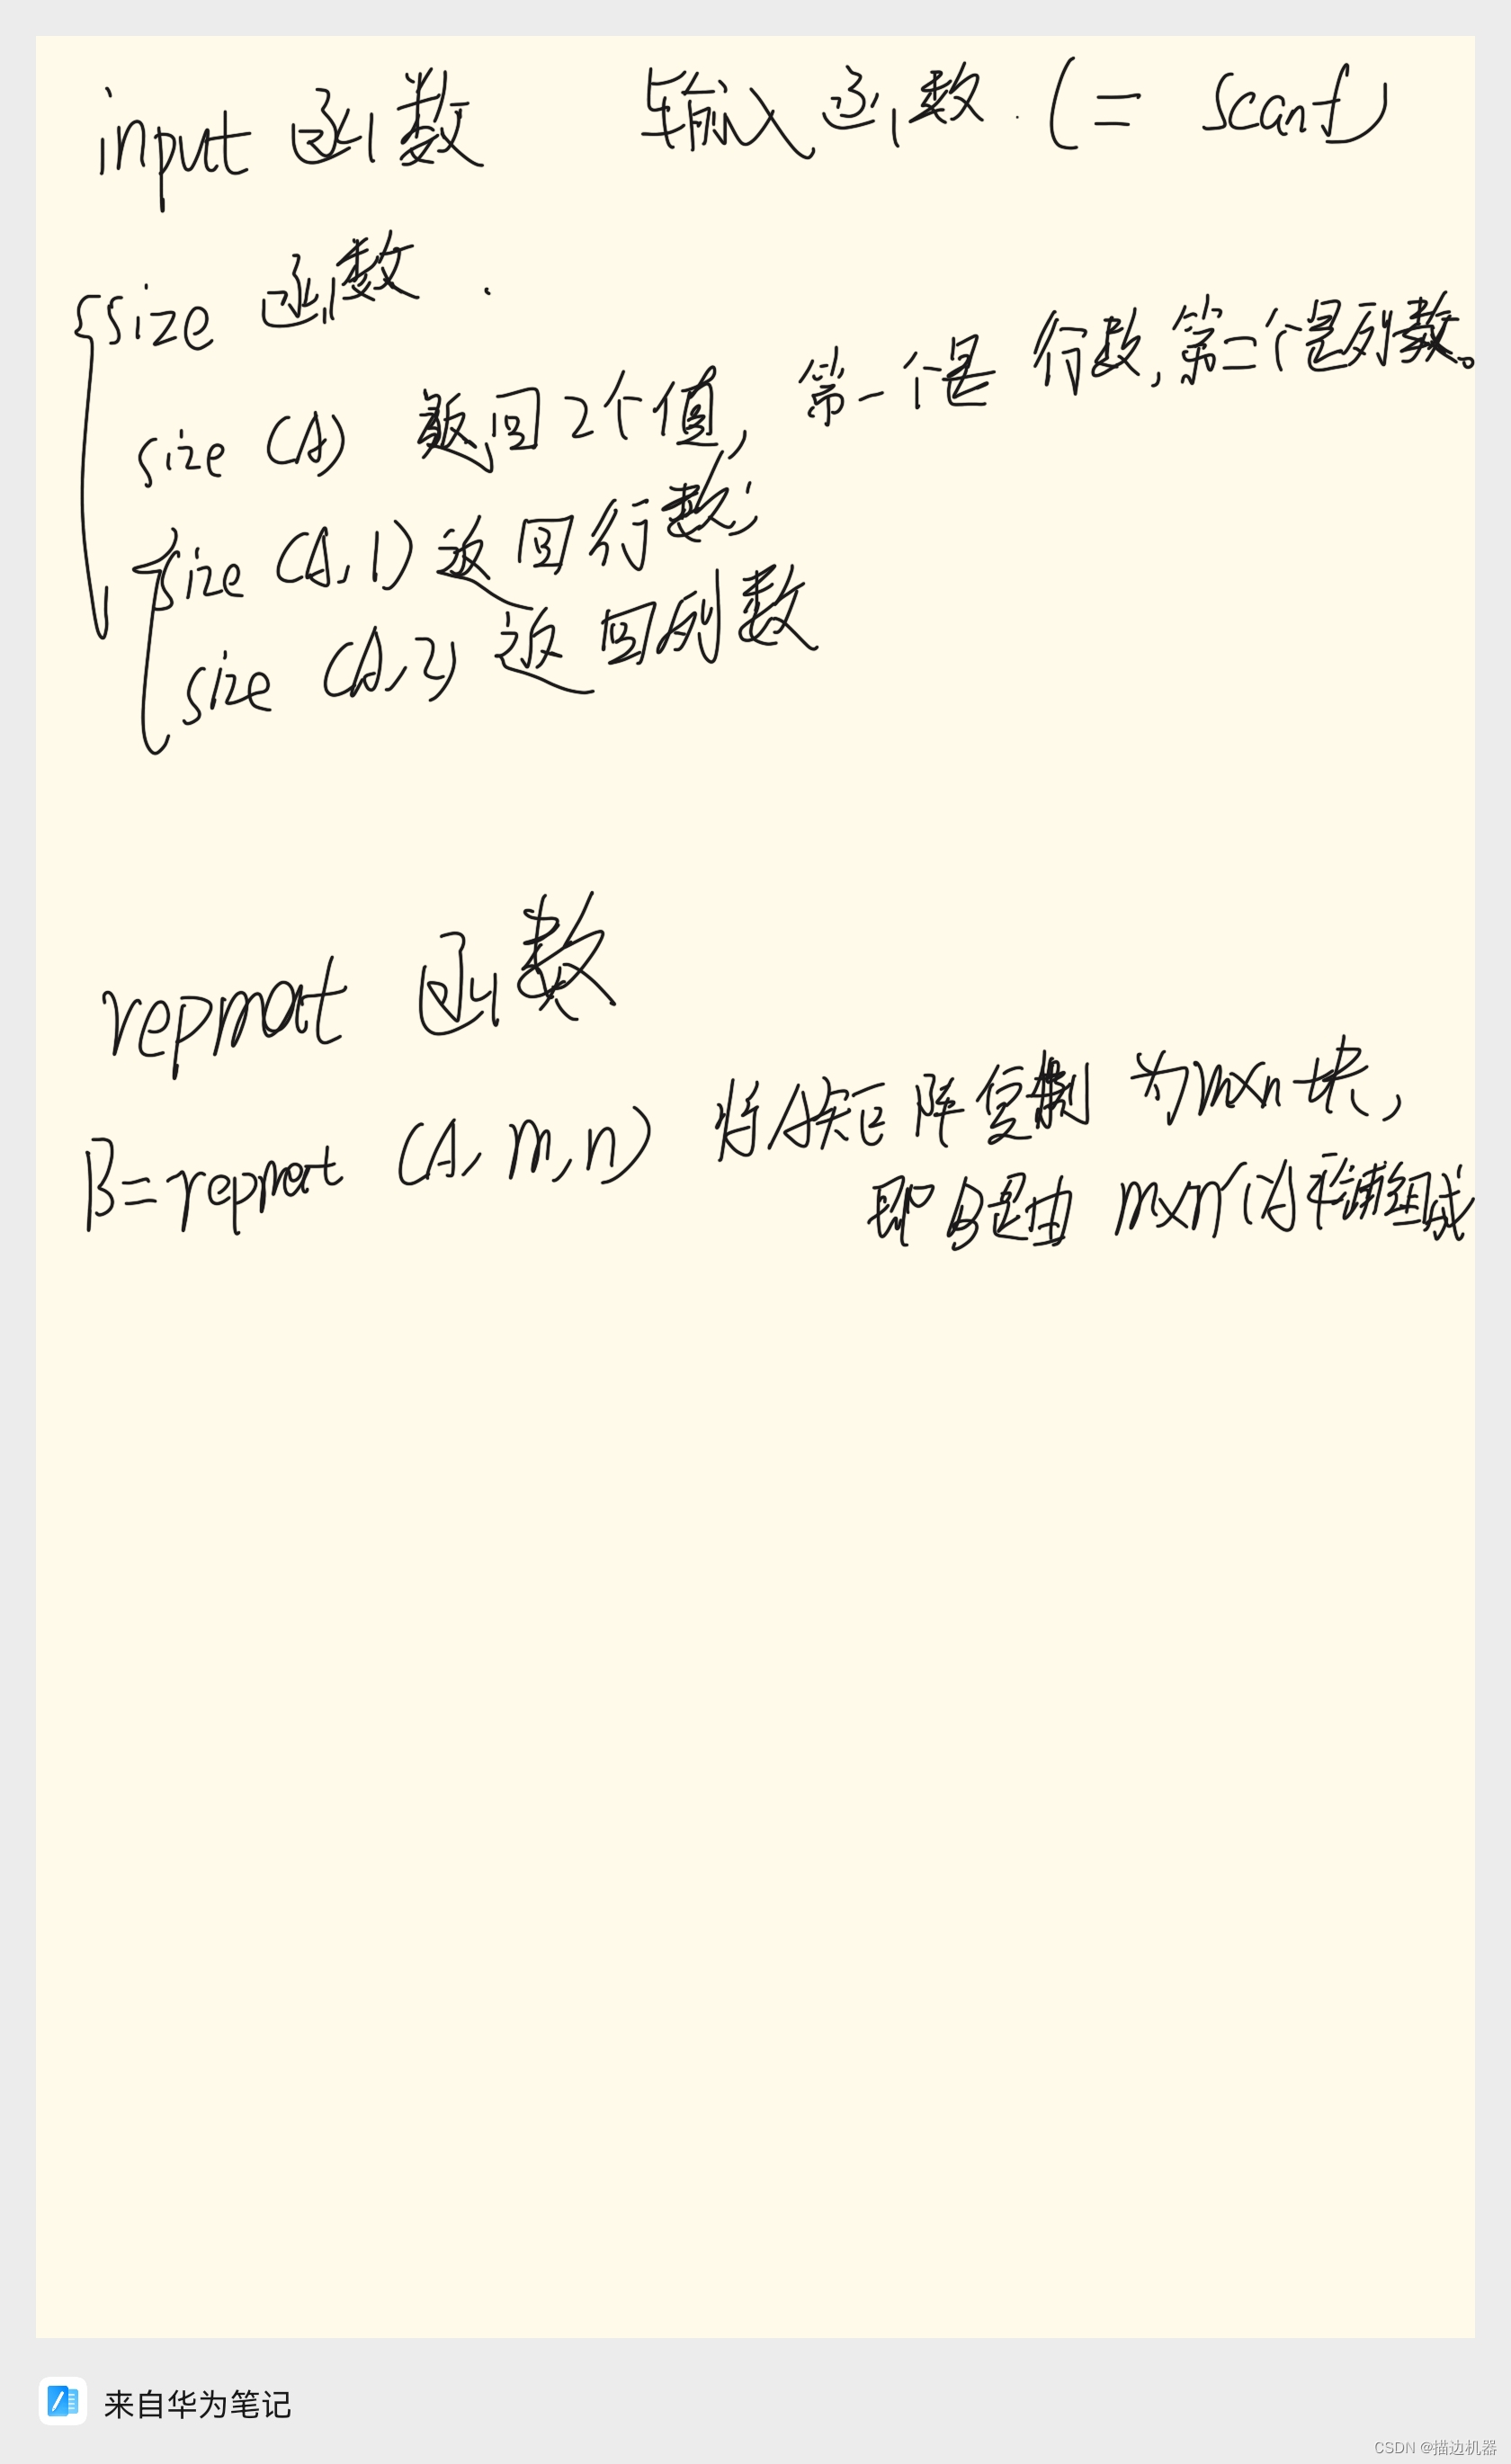 input 函数 输入函数. (= Scanf)
size 函数.
size (A) 返回2个值, 第一个是行数, 第二个是列数。
size (A,1) 返回行数;
size (A,2) 返回列数
repmat 函数
B=repmat (A,m,n) 将A矩阵复制为mxn块,
把B是由mxn个A平铺而成
来自华为笔记
CSDN @描边机器